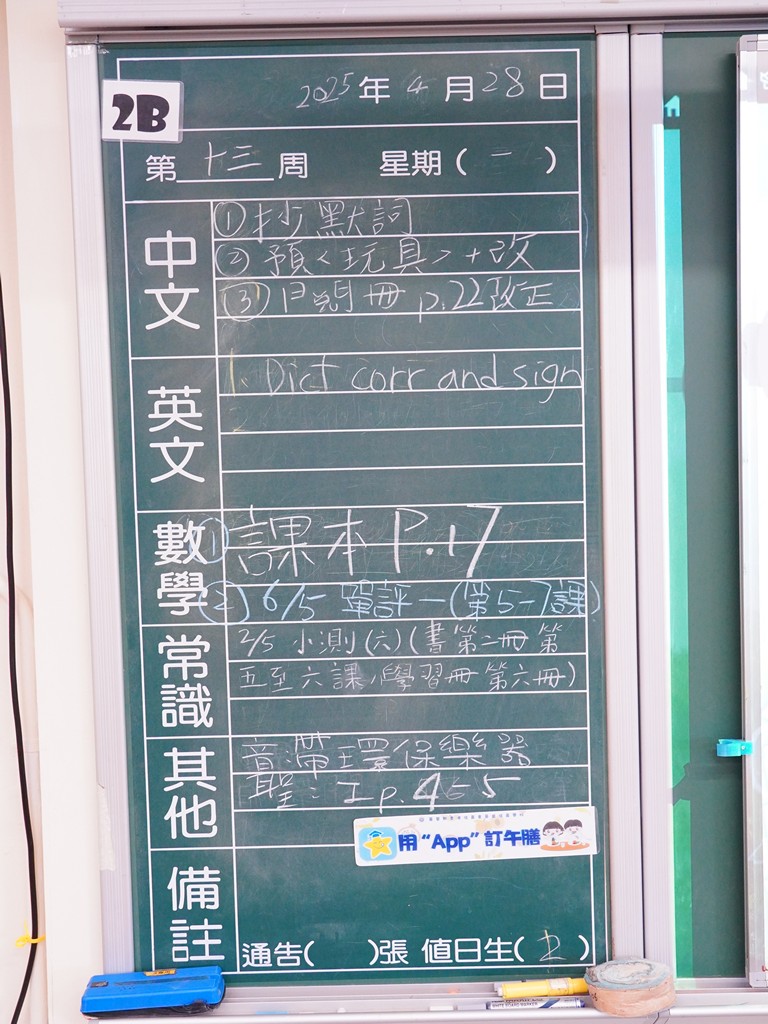 2B
2025年4月28日
第十三周 星期(一)
中文
①抄默詞
②預<玩具>+改
③ 冊 p.22改正
英文
1. Dict corr and sign
數學
①課本P.17
②6/5 單評一(第5-7課)
常識
2/5 小測(六)(書第二冊 第
五至六課/學習冊 第六冊)
其他
音 帶環保樂器
聖: p.4-5
用“App”訂午膳
備註
通告( )張 值日生(2)